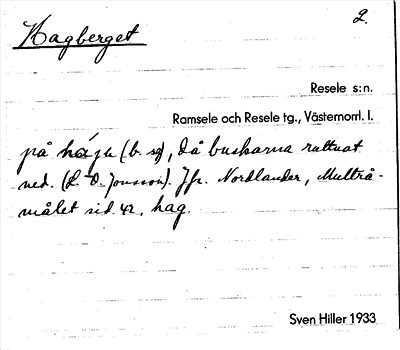 Hagberget 2.
Resele s:n.
Ramsele och Resele tg., Västernorrl. l.
på (b. sg), då buskarna ruttnat
ned. (L. O. Jonsson). Jfr. Nordlander, Multrå-
målet sid. 42. hag.
Sven Hiller 1933